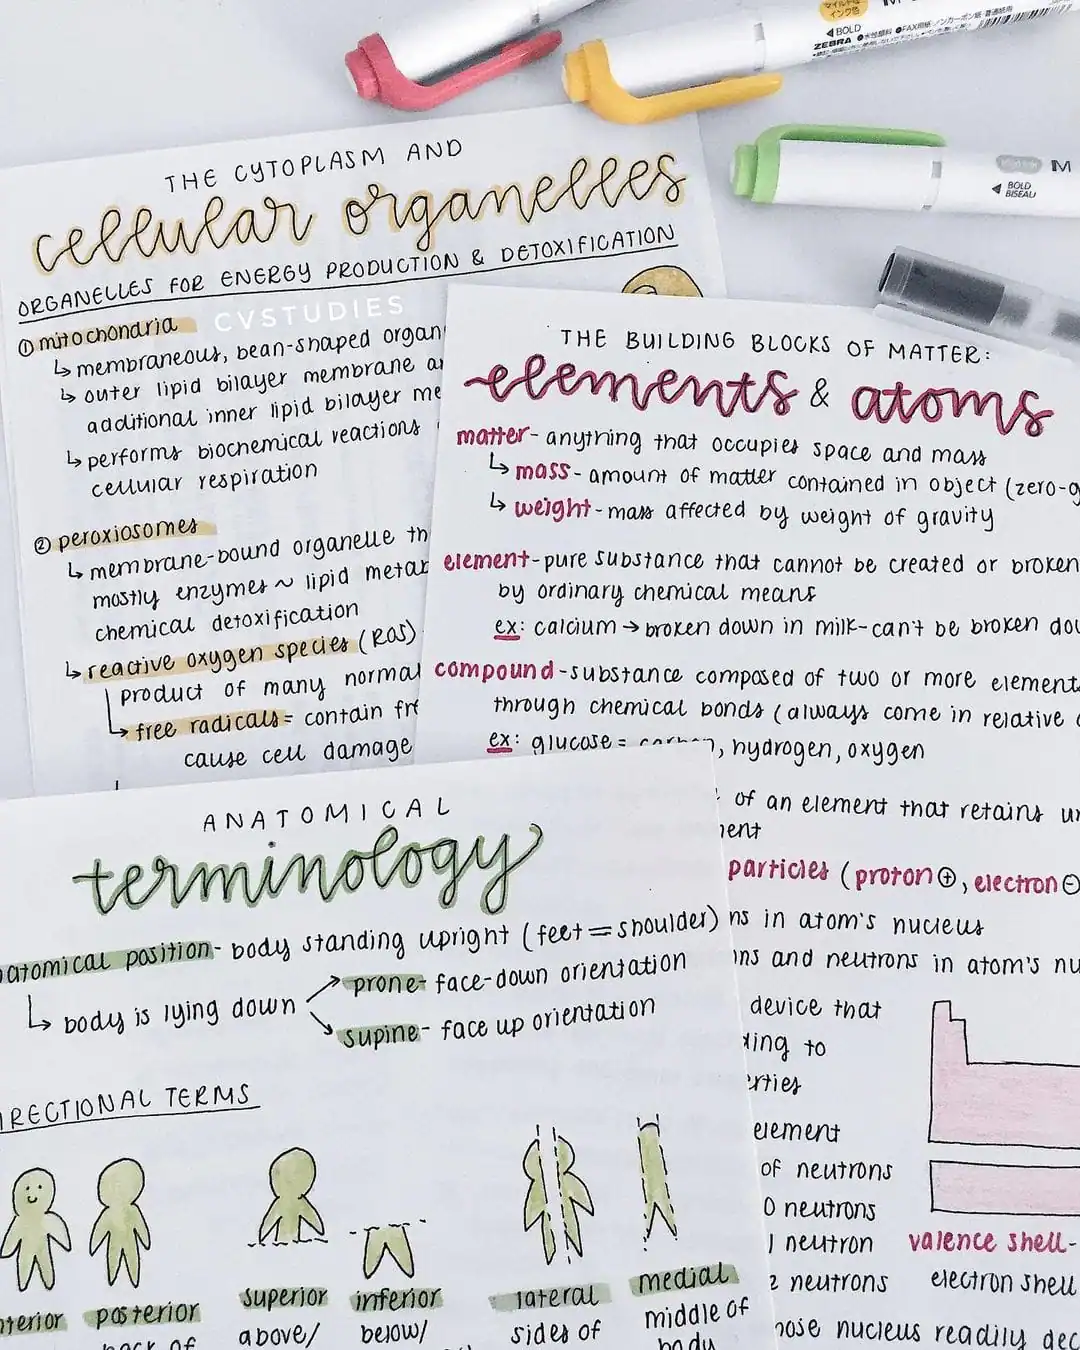 BOLD
ZEBRA
M
BOLD
BISEAU
THE CYTOPLASM AND
cellular organelles
ORGANELLES FOR ENERGY PRODUCTION & DETOXIFICATION
CVSTUDIES
① mitochondria
↳ membraneous, bean-shaped organ
↳ outer lipid bilayer membrane a
additional inner lipid bilayer me
↳ performs biochemical reactions
cellular respiration
② peroxiosomes
↳ membrane-bound organelle th
mostly enzymes ~ lipid metab
chemical detoxification
↳ reactive oxygen species (ROS)
product of many normal
↳ free radicals = contain fr
cause cell damage
THE BUILDING BLOCKS OF MATTER:
elements & atoms
matter - anything that occupies space and mass
↳ mass - amount of matter contained in object (zero-g
↳ weight - mass affected by weight of gravity
element - pure substance that cannot be created or broken
by ordinary chemical means
ex: calcium → broken down in milk - can't be broken dow
compound - substance composed of two or more element
through chemical bonds (always come in relative
ex: glucose = carbon, hydrogen, oxygen
of an element that retains un
ment
particles (proton ⊕, electron ⊖
ns in atom's nucleus
ons and neutrons in atom's nu
device that
ding to
erties
element
of neutrons
0 neutrons
1 neutron
2 neutrons
hose nucleus readily dec
valence shell -
electron shell
ANATOMICAL
terminology
natomical position - body standing upright (feet = shoulder)
↳ body is lying down
prone - face-down orientation
supine - face up orientation
IRECTIONAL TERMS
nterior
posterior
back of
superior
above/
inferior
below/
lateral
sides of
medial
middle of
body